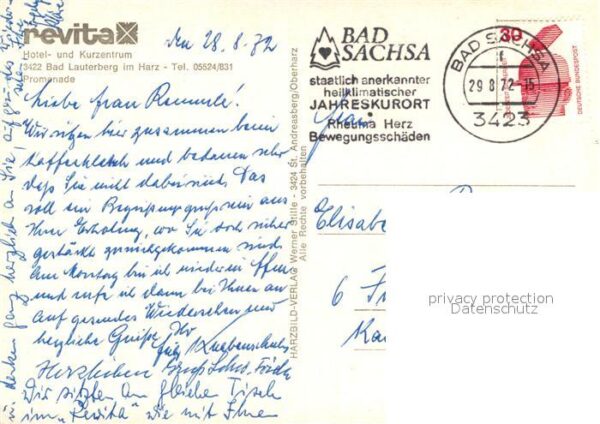 revita
Hotel- und Kurzentrum
3422 Bad Lauterberg im Harz - Tel. 05524/831
Promenade
den 28.8.72
Liebe Frau
Wir sitzen hier zusammen beim
Kaffeeklatsch und bedauern sehr
daß Sie nicht dabei sind. Das
soll ein Begrüßungsgruß sein aus
Ihrer Erholung, wo Sie doch sicher
gestärkt zurückgekommen sind.
Am Montag bin ich wieder in
und rufe ich dann bei Ihnen an
Auf gesundes Wiedersehen und
herzliche Grüße Ihr
Herzlichen Gruß
Wir sitzen am gleichen Tisch
im "Revita" wie mit Ihnen
wir denken ganz herzlich an Sie!
HARZBILD-VERLAG Werner Stille - 3424 St. Andreasberg/Oberharz
Alle Rechte vorbehalten
BAD
SACHSA
staatlich anerkannter
heilklimatischer
JAHRESKURORT
Rheuma Herz
Bewegungsschäden
BAD SACHSA
29.8.72-15
3423
30
DEUTSCHE BUNDESPOST
Frau
Elisabe
6 F
Ka
privacy protection
Datenschutz